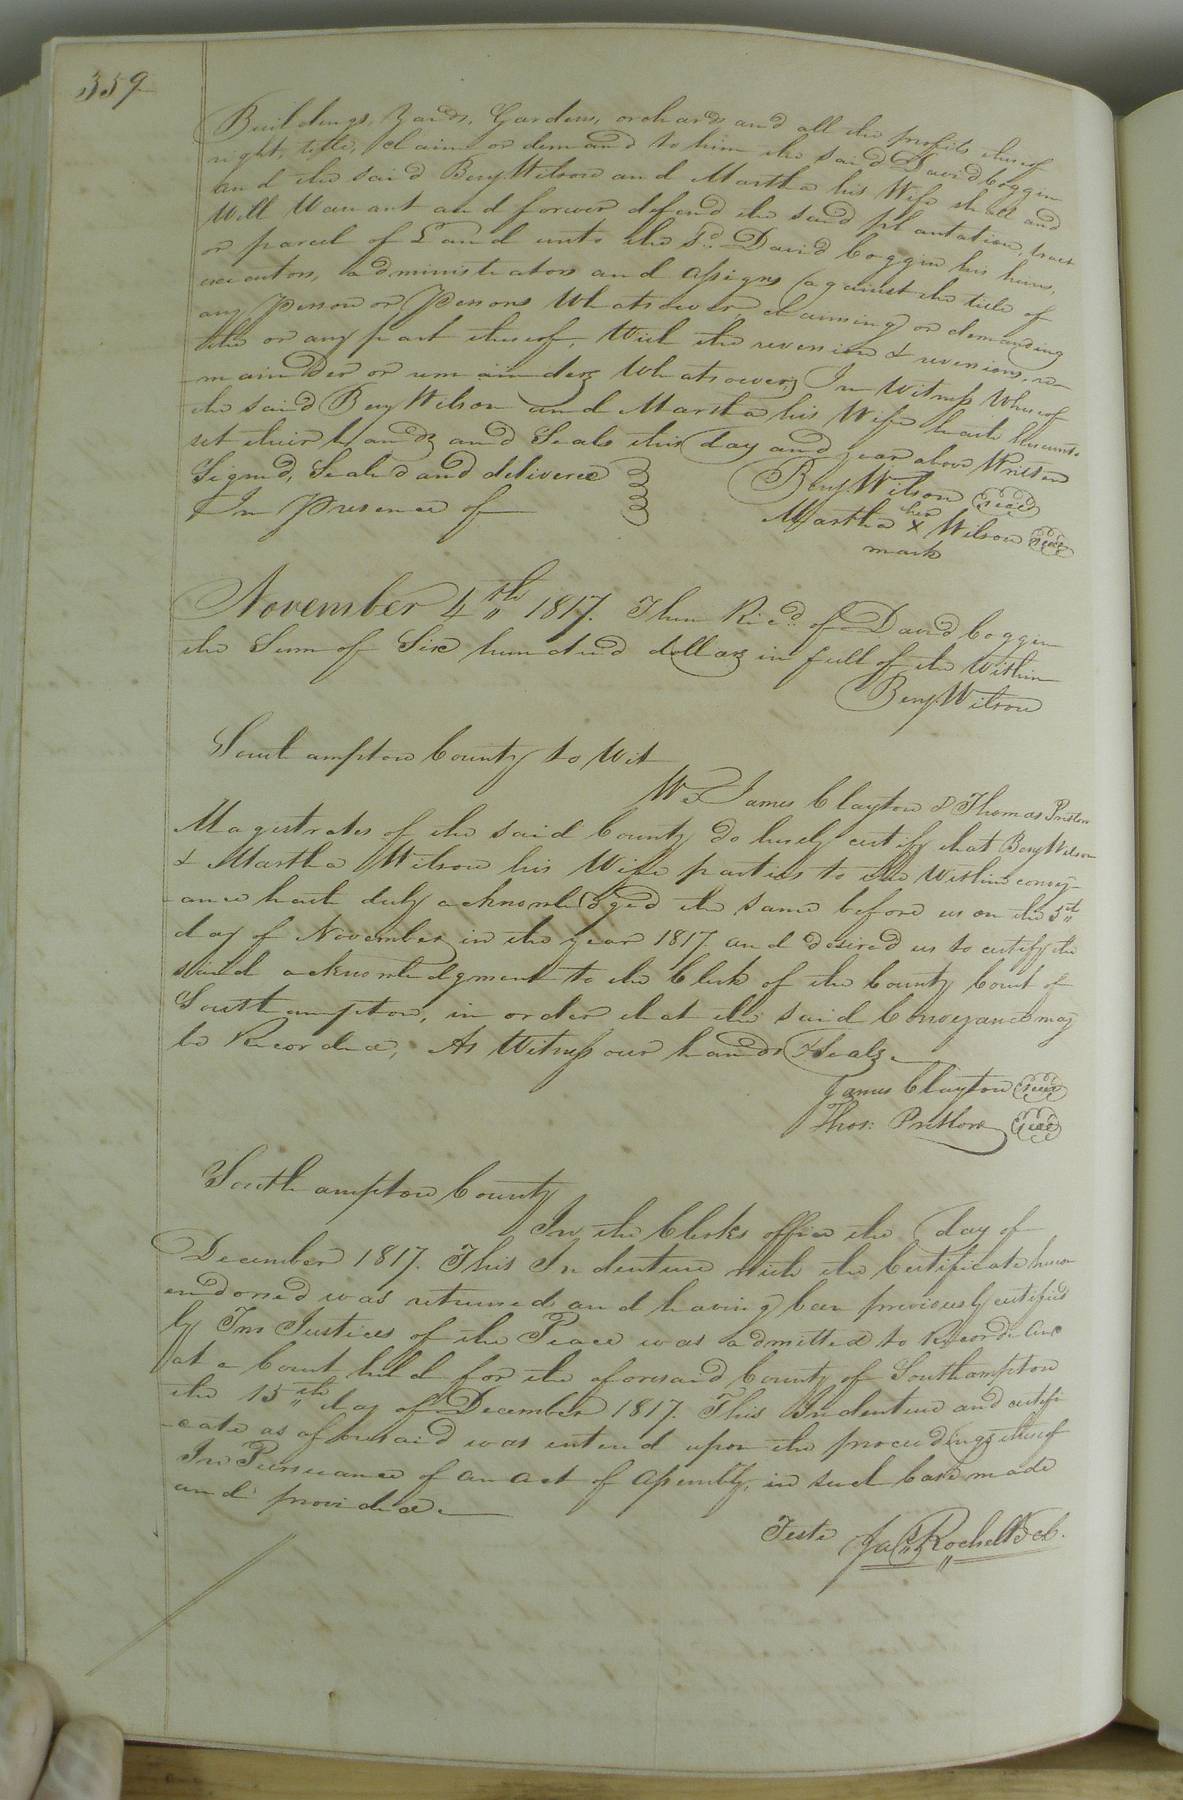 359
Buildings, Yards, Gardens, orchards and all the profits thereof
right, title, claim or demand to him the said David Coggin
and the said Benj. Wilson and Martha his Wife shall and
Will Warrant and forever defend the said plantation, tract
or parcel of Land unto the Sd. David Coggin his heirs,
executors, administrators and Assigns against the title of
any Person or Persons Whatsoever, claiming or demanding
the or any part thereof, With the revension & revensions, re
mainder or remainders Whatsoever, In Witness Whereof
the said Benj Wilson and Martha his Wife hath hereunto
set their hands and Seals this day and year above Written
Signd, Seald and delivered
In Presence of
Benj. Wilson seal
Martha her X Wilson seal
mark
November 4th 1817. Then Recd. of David Coggin
the Sum of Six hundred dollars in full of the Within
Benj. Wilson
Southampton County to Wit
We James Clayton & Thomas Prestton
Magistrates of the said County do hereby certify that Benj Wilson
& Martha Wilson his Wife parties to the Within convey-
-ance hath duly acknowledged the same before us on the 5th
day of November in the year 1817. and desired us to certify the
said acknowledgment to the Clerk of the County Court of
Southampton, in order that the said Conveyance may
be Recorded, As Witness our hands & Seals
James Clayton seal
Thos: Prettow seal
Southampton County
In the Clerks office the day of
December 1817. This Indenture With the Certificate hereon
endorsed was returned and having been previously certified
by Two Justices of the Peace was admitted to Record And
at a Court held for the aforesaid County of Southampton
the 15th day of December 1817. This Indenture and certifi
-cate as aforesaid was entered upon the proceedings thereof
In Pursuance of an act of Assembly, in such Case made
and provided.
Teste Jas Rochelle cl.